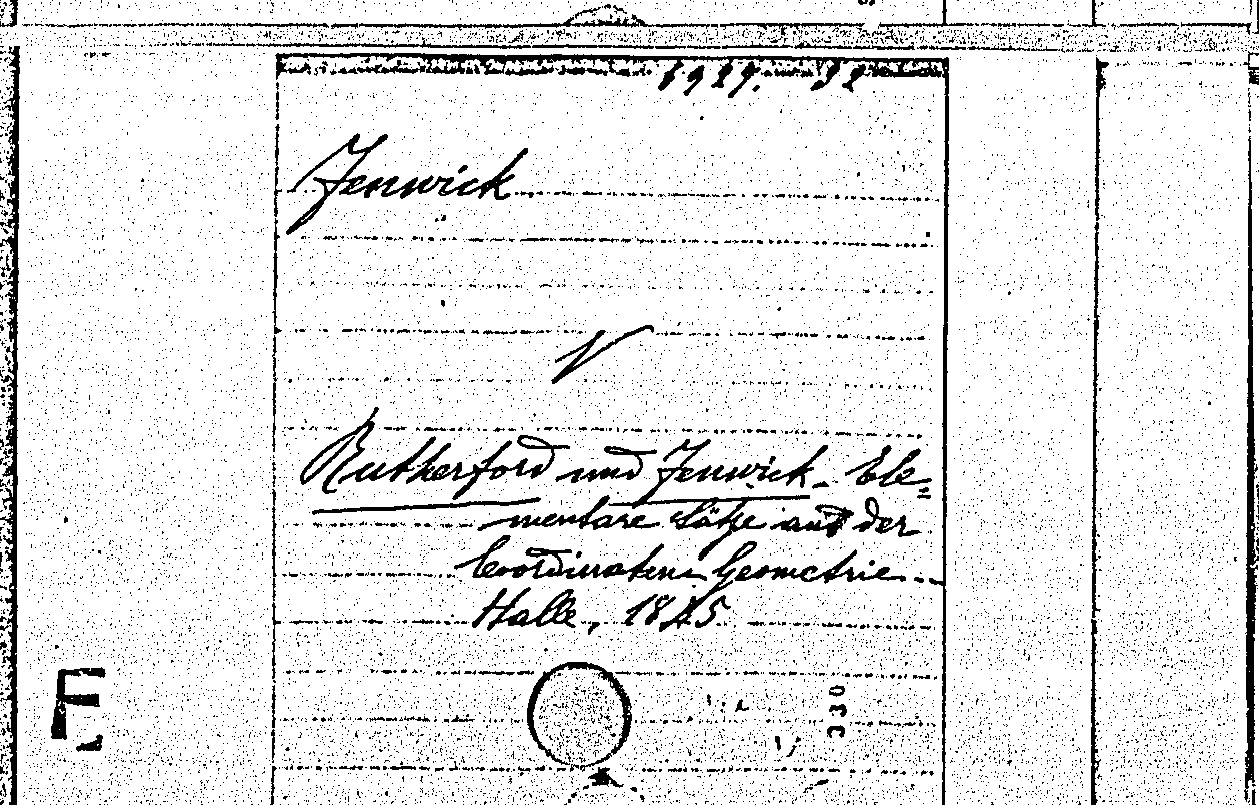 Fenwick
Rutherford und Fenwick. Ele=
mentare Sätze aus der
Coordinaten Geometrie.
Halle, 1845
E
330